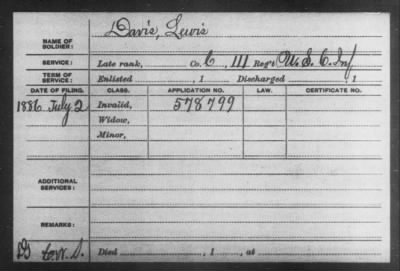 NAME OF SOLDIER: Davis, Lewis
SERVICE: Late rank, Co. C, 111 Reg't U. S. C. Inf
TERM OF SERVICE: Enlisted , 1 Discharged , 1
DATE OF FILING. CLASS. APPLICATION NO. LAW. CERTIFICATE NO.
1886 July 2 Invalid, 578799
Widow,
Minor,
ADDITIONAL SERVICES:
REMARKS:
Died , 1 , at